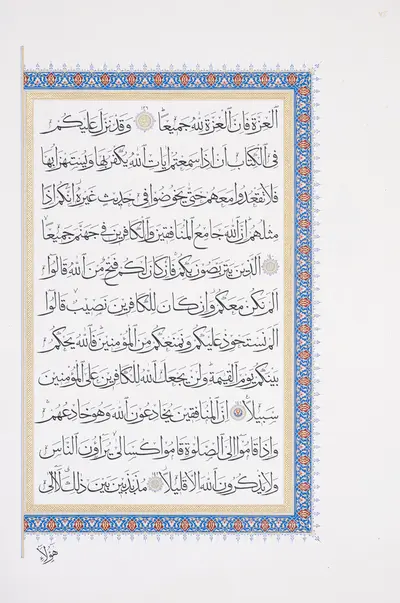 العزة فان العزة لله جميعا وقد نزل عليكم
فى الكتاب ان اذا سمعتم ايات الله يكفر بها ويستهزا بها
فلا تقعدوا معهم حتى يخوضوا فى حديث غيره انكم اذا
مثلهم ان الله جامع المنافقين والكافرين فى جهنم جميعا
الذين يتربصون بكم فان كان لكم فتح من الله قالوا
الم نكن معكم وان كان للكافرين نصيب قالوا
الم نستحوذ عليكم ونمنعكم من المؤمنين فالله يحكم
بينكم يوم القيمة ولن يجعل الله للكافرين على المؤمنين
سبيلا ان المنافقين يخادعون الله وهو خادعهم
واذا قاموا الى الصلوة قاموا كسالى يراؤن الناس
ولا يذكرون الله الا قليلا مذبذبين بين ذلك لا الى
هؤلاء